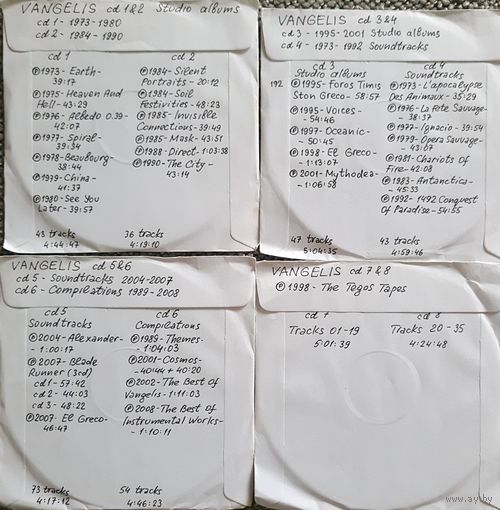 VANGELIS cd 1&2 Studio albums
cd 1 - 1973-1980
cd 2 - 1984-1990
cd 1
℗1973- Earth-
39:17
℗1975- Heaven And
Hell- 43:29
℗1976- Albedo 0.39-
42:07
℗1977- Spiral-
39:34
℗1978- Beaubourg-
38:44
℗1979- China-
41:37
℗1980- See You
Later- 39:57
43 tracks
4:44:47
cd 2
℗1984- Silent
Portraits - 20:12
℗1984- Soil
Festivities - 48:23
℗1985- Invisible
Connections- 39:49
℗1985- Mask- 43:51
℗1988- Direct- 1:03:38
℗1990- The City-
- 43:14
36 tracks
4:19:10
VANGELIS cd 3&4
cd 3 - 1995-2001 Studio albums
cd 4 - 1973-1992 Soundtracks
192
cd 3
Studio albums
℗1995- Foros Timis
Ston Greco- 58:57
℗1995- Voices-
- 54:46
℗1997- Oceanic-
- 50:45
℗1998- El Greco-
- 1:13:07
℗2001- Mythodea-
- 1:06:58
47 tracks
5:04:35
cd 4
Soundtracks
℗1973- L'apocalypse
Des Animaux- 35:29
℗1976- La Fete Sauvage-
- 38:37
℗1977- Ignacio- 39:54
℗1979- Opera Sauvage-
- 43:07
℗1981- Chariots Of
Fire- 42:08
℗1983- Antarctica-
- 45:33
℗1992- 1492 Conquest
Of Paradise- 54:55
43 tracks
4:59:46
VANGELIS cd 5&6
cd 5 - Soundtracks 2004-2007
cd 6 - Compilations 1989-2008
cd 5
Soundtracks
℗2004- Alexander-
- 1:00:17
℗2007- Blade
Runner (3cd)
cd 1- 57:42
cd 2- 44:03
cd 3- 48:22
℗2007- El Greco-
46:47
73 tracks
4:17:12
cd 6
Compilations
℗1989- Themes-
- 1:04:03
℗2001- Cosmos-
- 40:44 + 40:20
℗2002- The Best Of
Vangelis- 1:11:03
℗2008- The Best Of
Instrumental Works-
- 1:10:11
54 tracks
4:46:23
VANGELIS cd 7&8
℗1998- The Tegos Tapes
cd 7
Tracks 01-19
5:01:39
cd 8
Tracks 20-35
4:24:48
www.ay.by